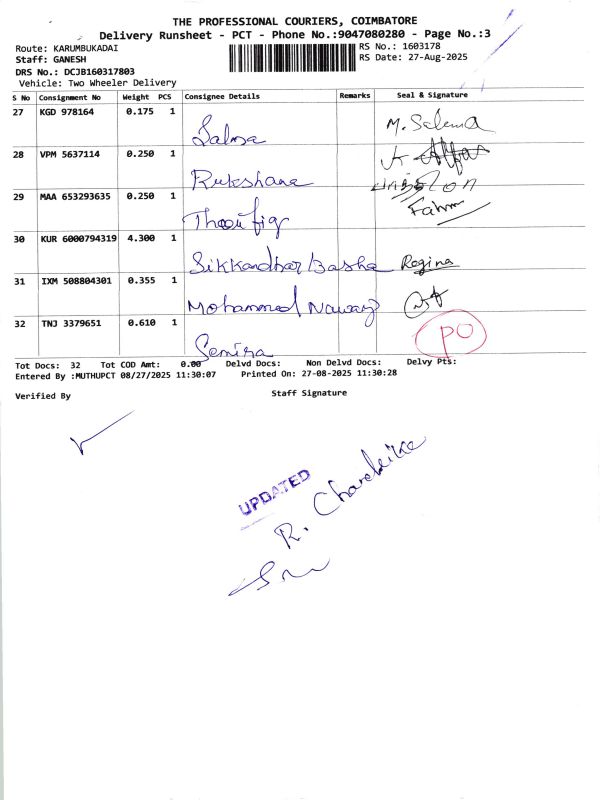 THE PROFESSIONAL COURIERS, COIMBATORE
Delivery Runsheet - PCT - Phone No.:9047080280 - Page No.:3
Route: KARUMBUKADAI RS No.: 1603178
Staff: GANESH RS Date: 27-Aug-2025
DRS No.: DCJB160317803
Vehicle: Two Wheeler Delivery
S No Consignment No Weight PCS Consignee Details Remarks Seal & Signature
27 KGD 978164 0.175 1
Salma M. Salema
28 VPM 5637114 0.250 1
Rukshana
29 MAA 653293635 0.250 1
Thoufiq Fahim
30 KUR 6000794319 4.300 1
Sikkandhar Basha Regina
31 IXM 508804301 0.355 1
Mohammed Nawaz
32 TNJ 3379651 0.610 1 PO
Semira
Tot Docs: 32 Tot COD Amt: 0.00 Delvd Docs: Non Delvd Docs: Delvy Pts:
Entered By :MUTHUPCT 08/27/2025 11:30:07 Printed On: 27-08-2025 11:30:28
Verified By Staff Signature
UPDATED
R.